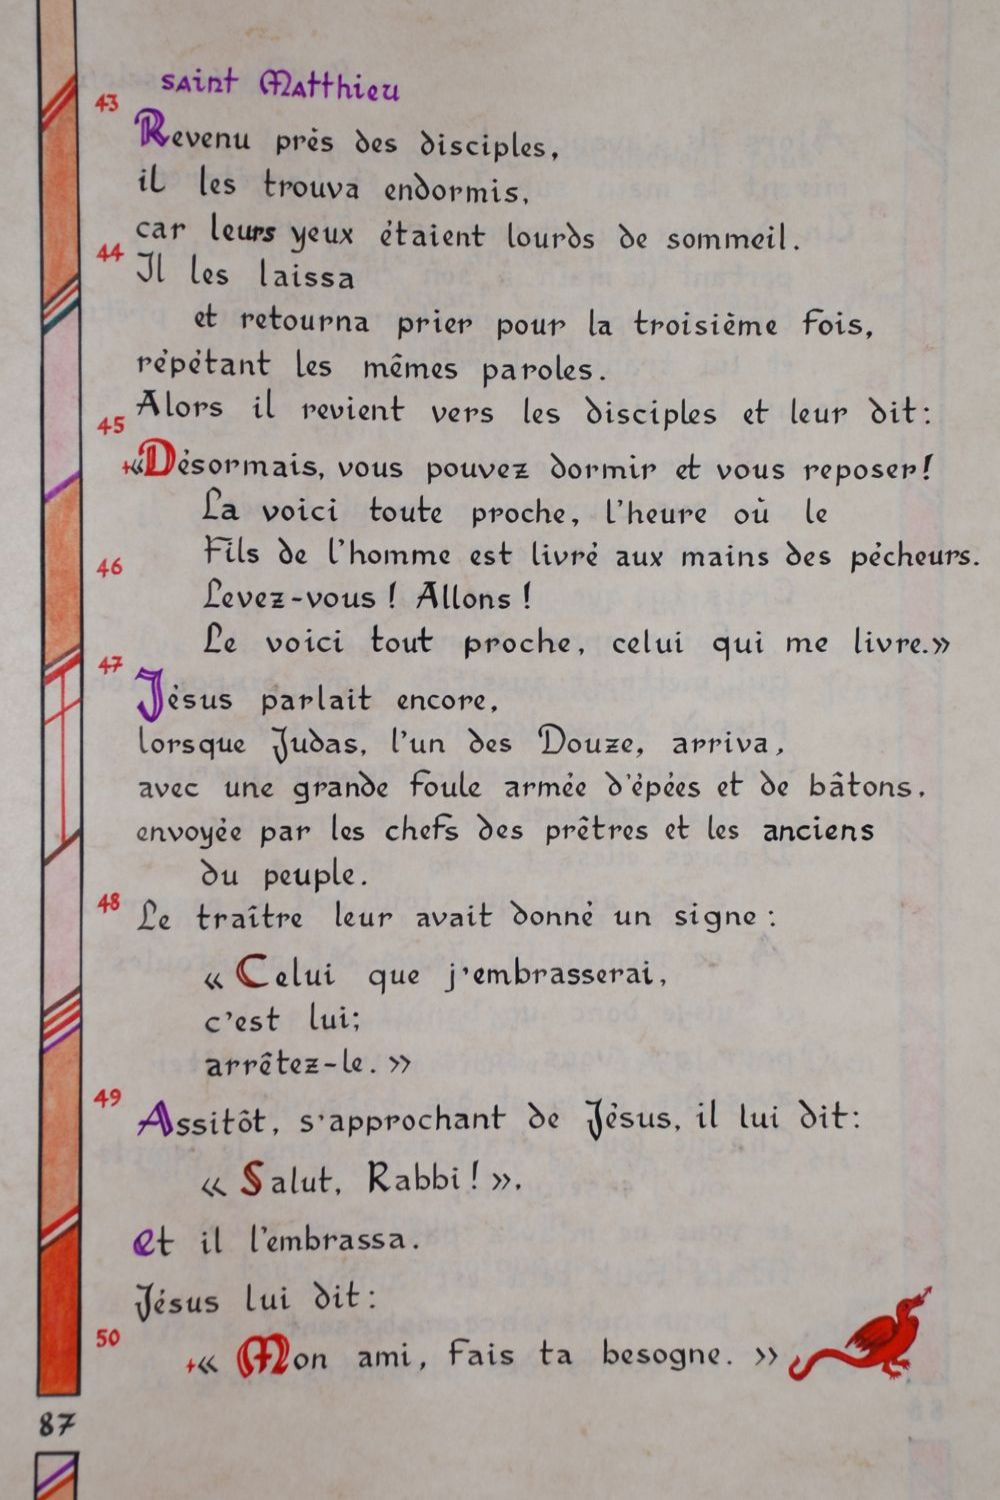 saint Matthieu
43
Revenu près des disciples,
il les trouva endormis,
car leurs yeux étaient lourds de sommeil.
44
Il les laissa
et retourna prier pour la troisième fois,
répétant les mêmes paroles.
45
Alors il revient vers les disciples et leur dit:
+«Désormais, vous pouvez dormir et vous reposer!
La voici toute proche, l'heure où le
Fils de l'homme est livré aux mains des pécheurs.
46
Levez-vous! Allons!
Le voici tout proche, celui qui me livre.»
47
Jésus parlait encore,
lorsque Judas, l'un des Douze, arriva,
avec une grande foule armée d'épées et de bâtons,
envoyée par les chefs des prêtres et les anciens
du peuple.
48
Le traître leur avait donné un signe:
« Celui que j'embrasserai,
c'est lui;
arrêtez-le. »
49
Assitôt, s'approchant de Jésus, il lui dit:
« Salut, Rabbi! »,
et il l'embrassa.
Jésus lui dit:
50
+« Mon ami, fais ta besogne. »
87